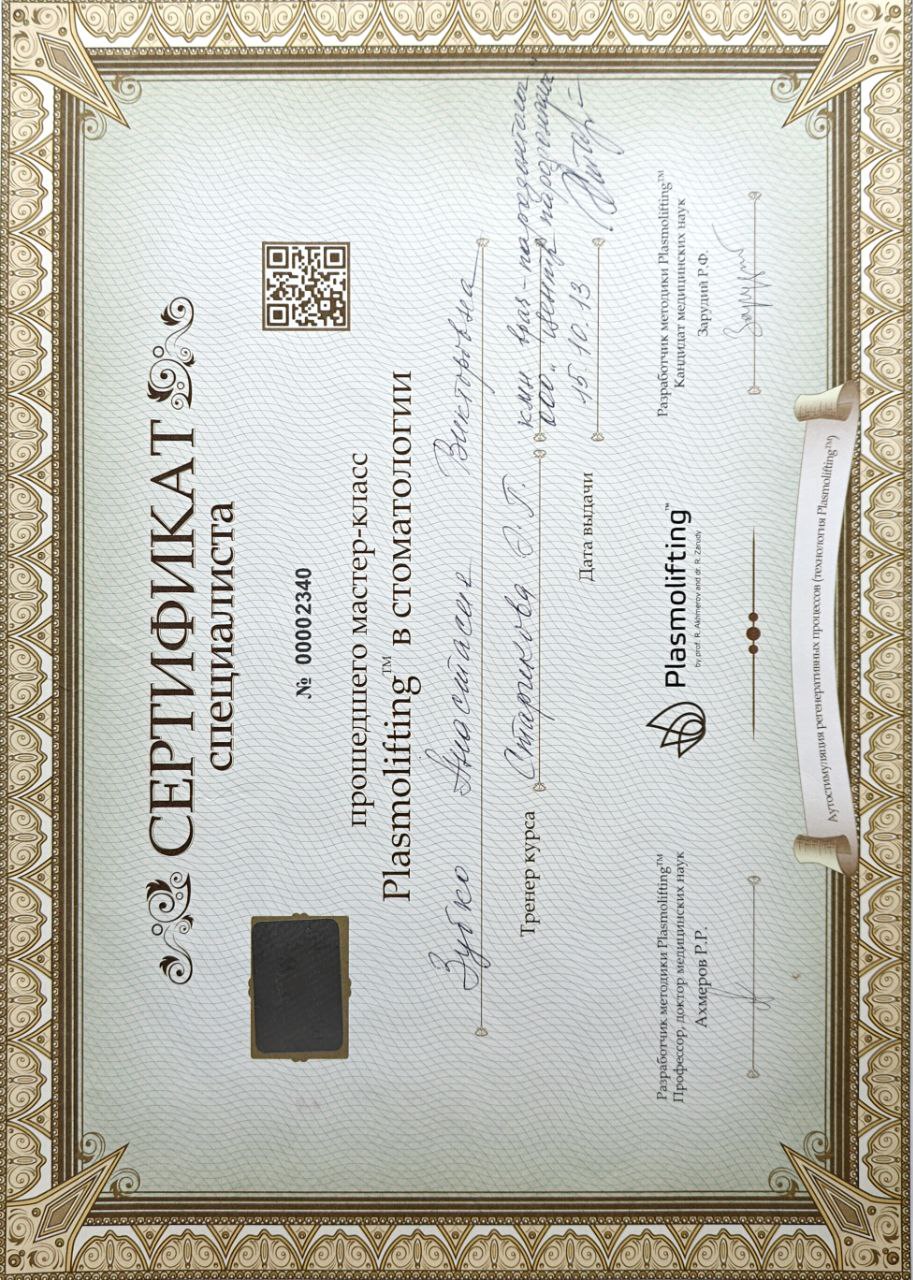 СЕРТИФИКАТ
специалиста
№ 00002340
прошедшего мастер-класс
Plasmolifting™ в стоматологии
Зубко Анастасие Викторовна
Тренер курса Старикова Э.Г. кмн врач-пародонтолог
ООО "Центр пародонтологии"
Дата выдачи 15.10.13
Разработчик методики Plasmolifting™
Профессор, доктор медицинских наук
Ахмеров Р.Р.
Plasmolifting™
by prof. R. Akhmerov and dr. R. Zarudy
Разработчик методики Plasmolifting™
Кандидат медицинских наук
Зарудий Р.Ф.
Зарудий
Аутостимуляция регенеративных процессов (технология Plasmolifting™)